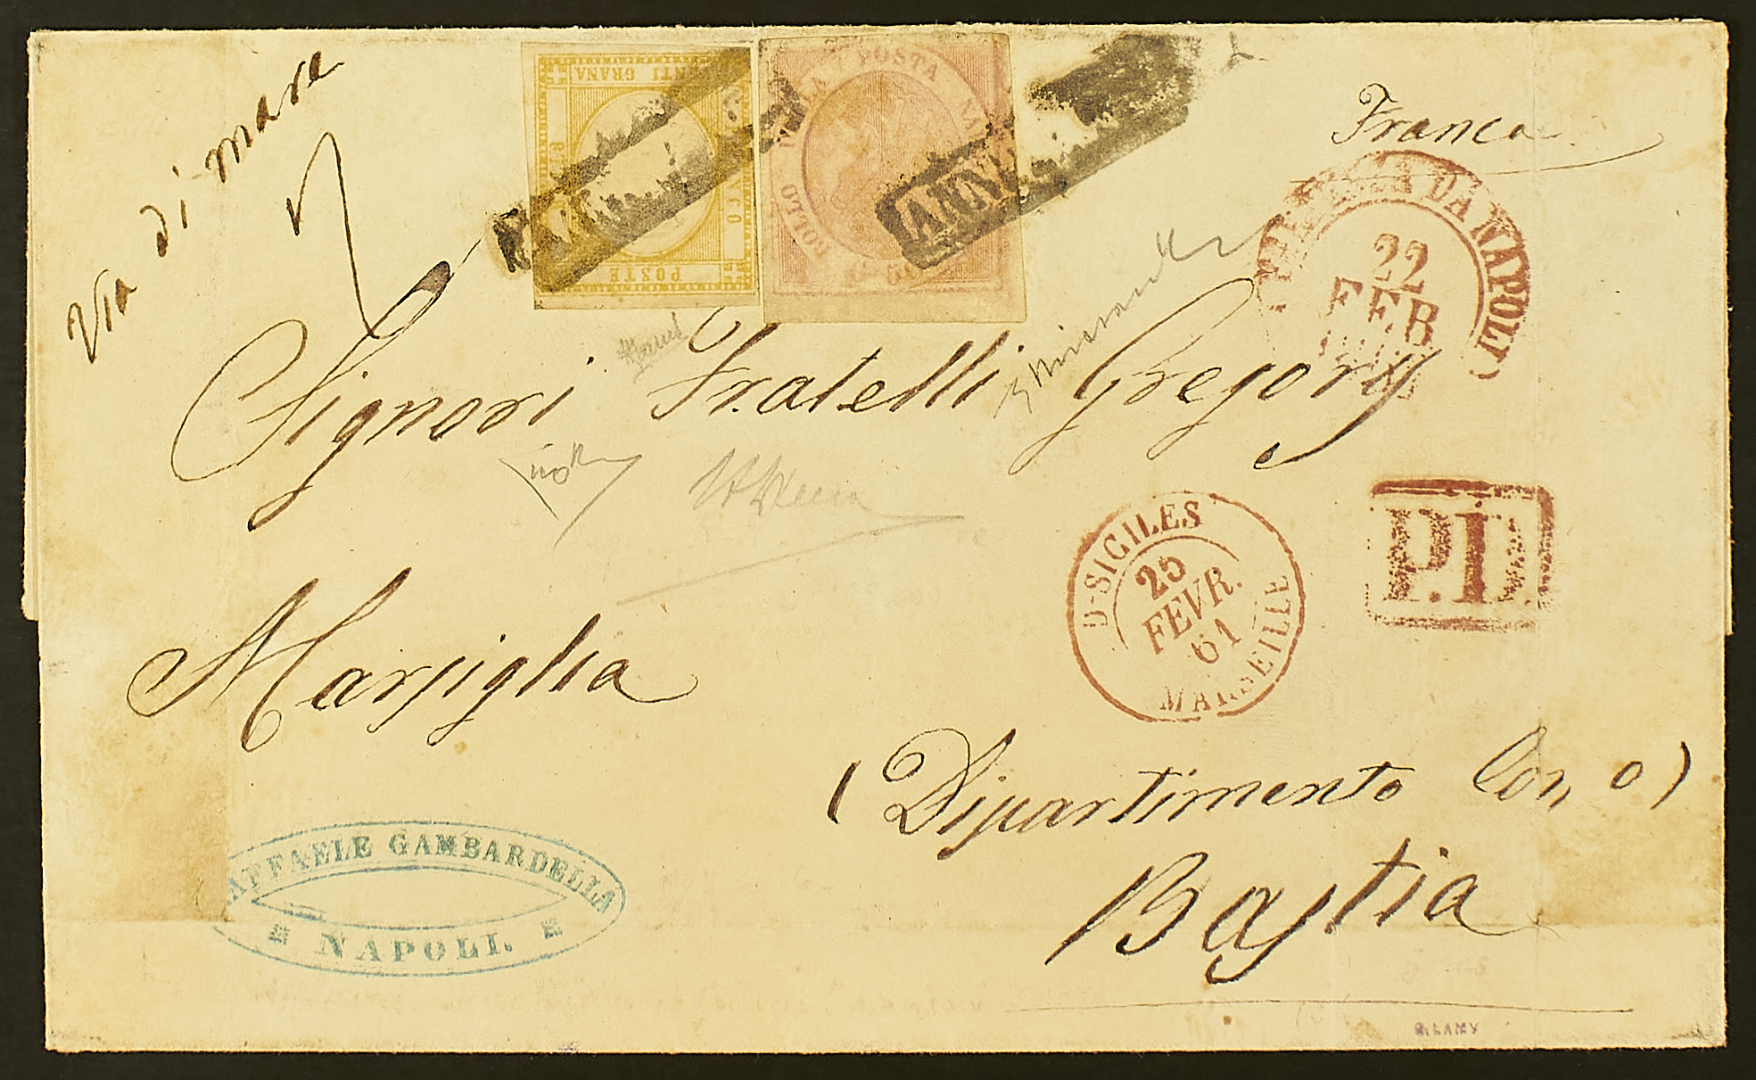 Via di mare
Franca
GRANA
POSTE
POSTA
BOLLO
ANNU
DA NAPOLI
22
FEB
Signori Fratelli Gregory
D-SICILES
25
FEVR.
61
MARSEILLE
P.D.
Marsiglia
(Dipartimento
Bastia
RAFFAELE GAMBARDELLA
NAPOLI.
R. LAMY